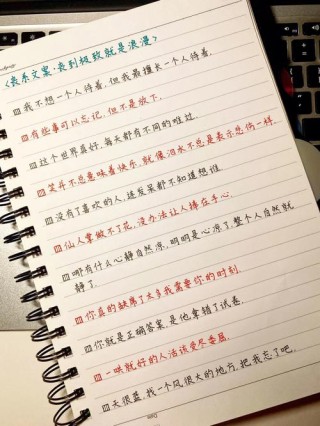 《丧系文案·丧到极致就是浪漫》
我不想一个人待着,但我最擅长一个人待着.
有些事可以忘记,但不是放下.
这个世界真好,每天都有不同的难过.
笑并不总意味着快乐,就像泪水不总是表示悲伤一样.
没有了喜欢的人,连发呆都不知道想谁.
仙人掌做不了花,没办法让人捧在手心.
哪有什么心静自然凉,明明是心凉了,整个人自然就
静了.
你真的缺席了太多我需要你的时刻.
你就是正确答案,是他拿错了试卷.
一哄就好的人活该受尽委屈.
天很蓝,找一个风很大的地方,把我忘了吧.